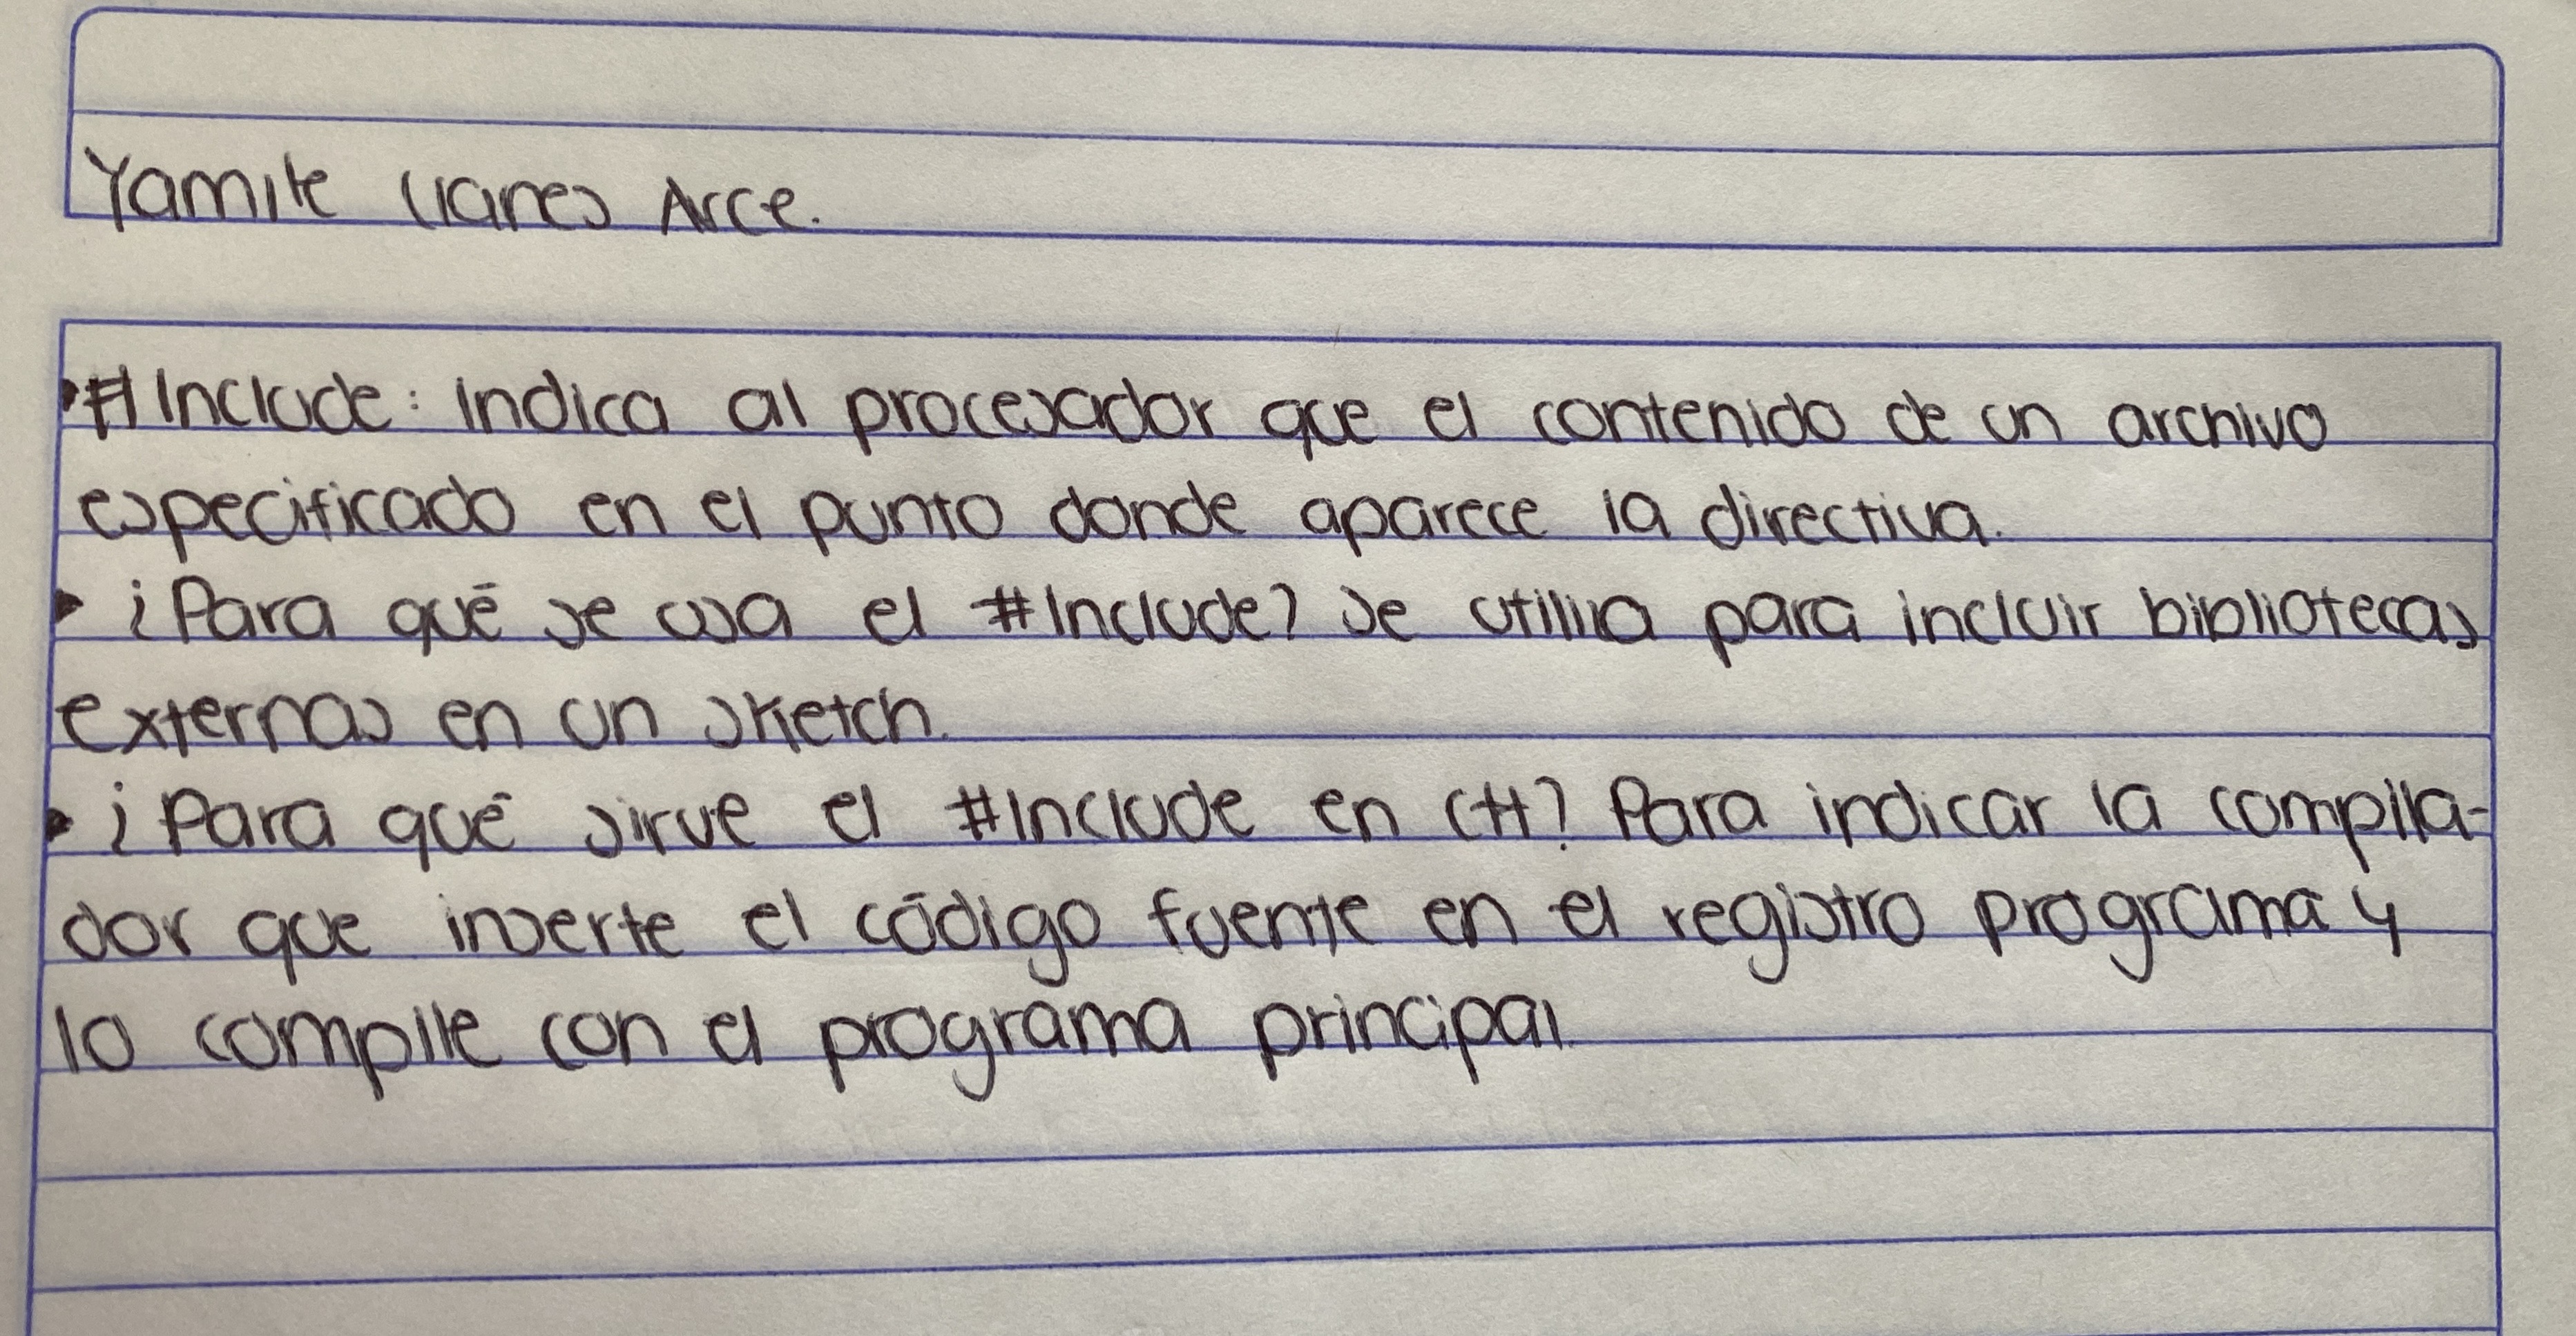 Yamile Llanes Arce.
#Include: Indica al procesador que el contenido de un archivo
especificado en el punto donde aparece la directiva.
¿Para qué se usa el #Include? Se utiliza para incluir bibliotecas
externas en un sketch.
¿Para qué sirve el #Include en C++? Para indicar la compila-
dor que inserte el código fuente en el registro programa y
lo compile con el programa principal.